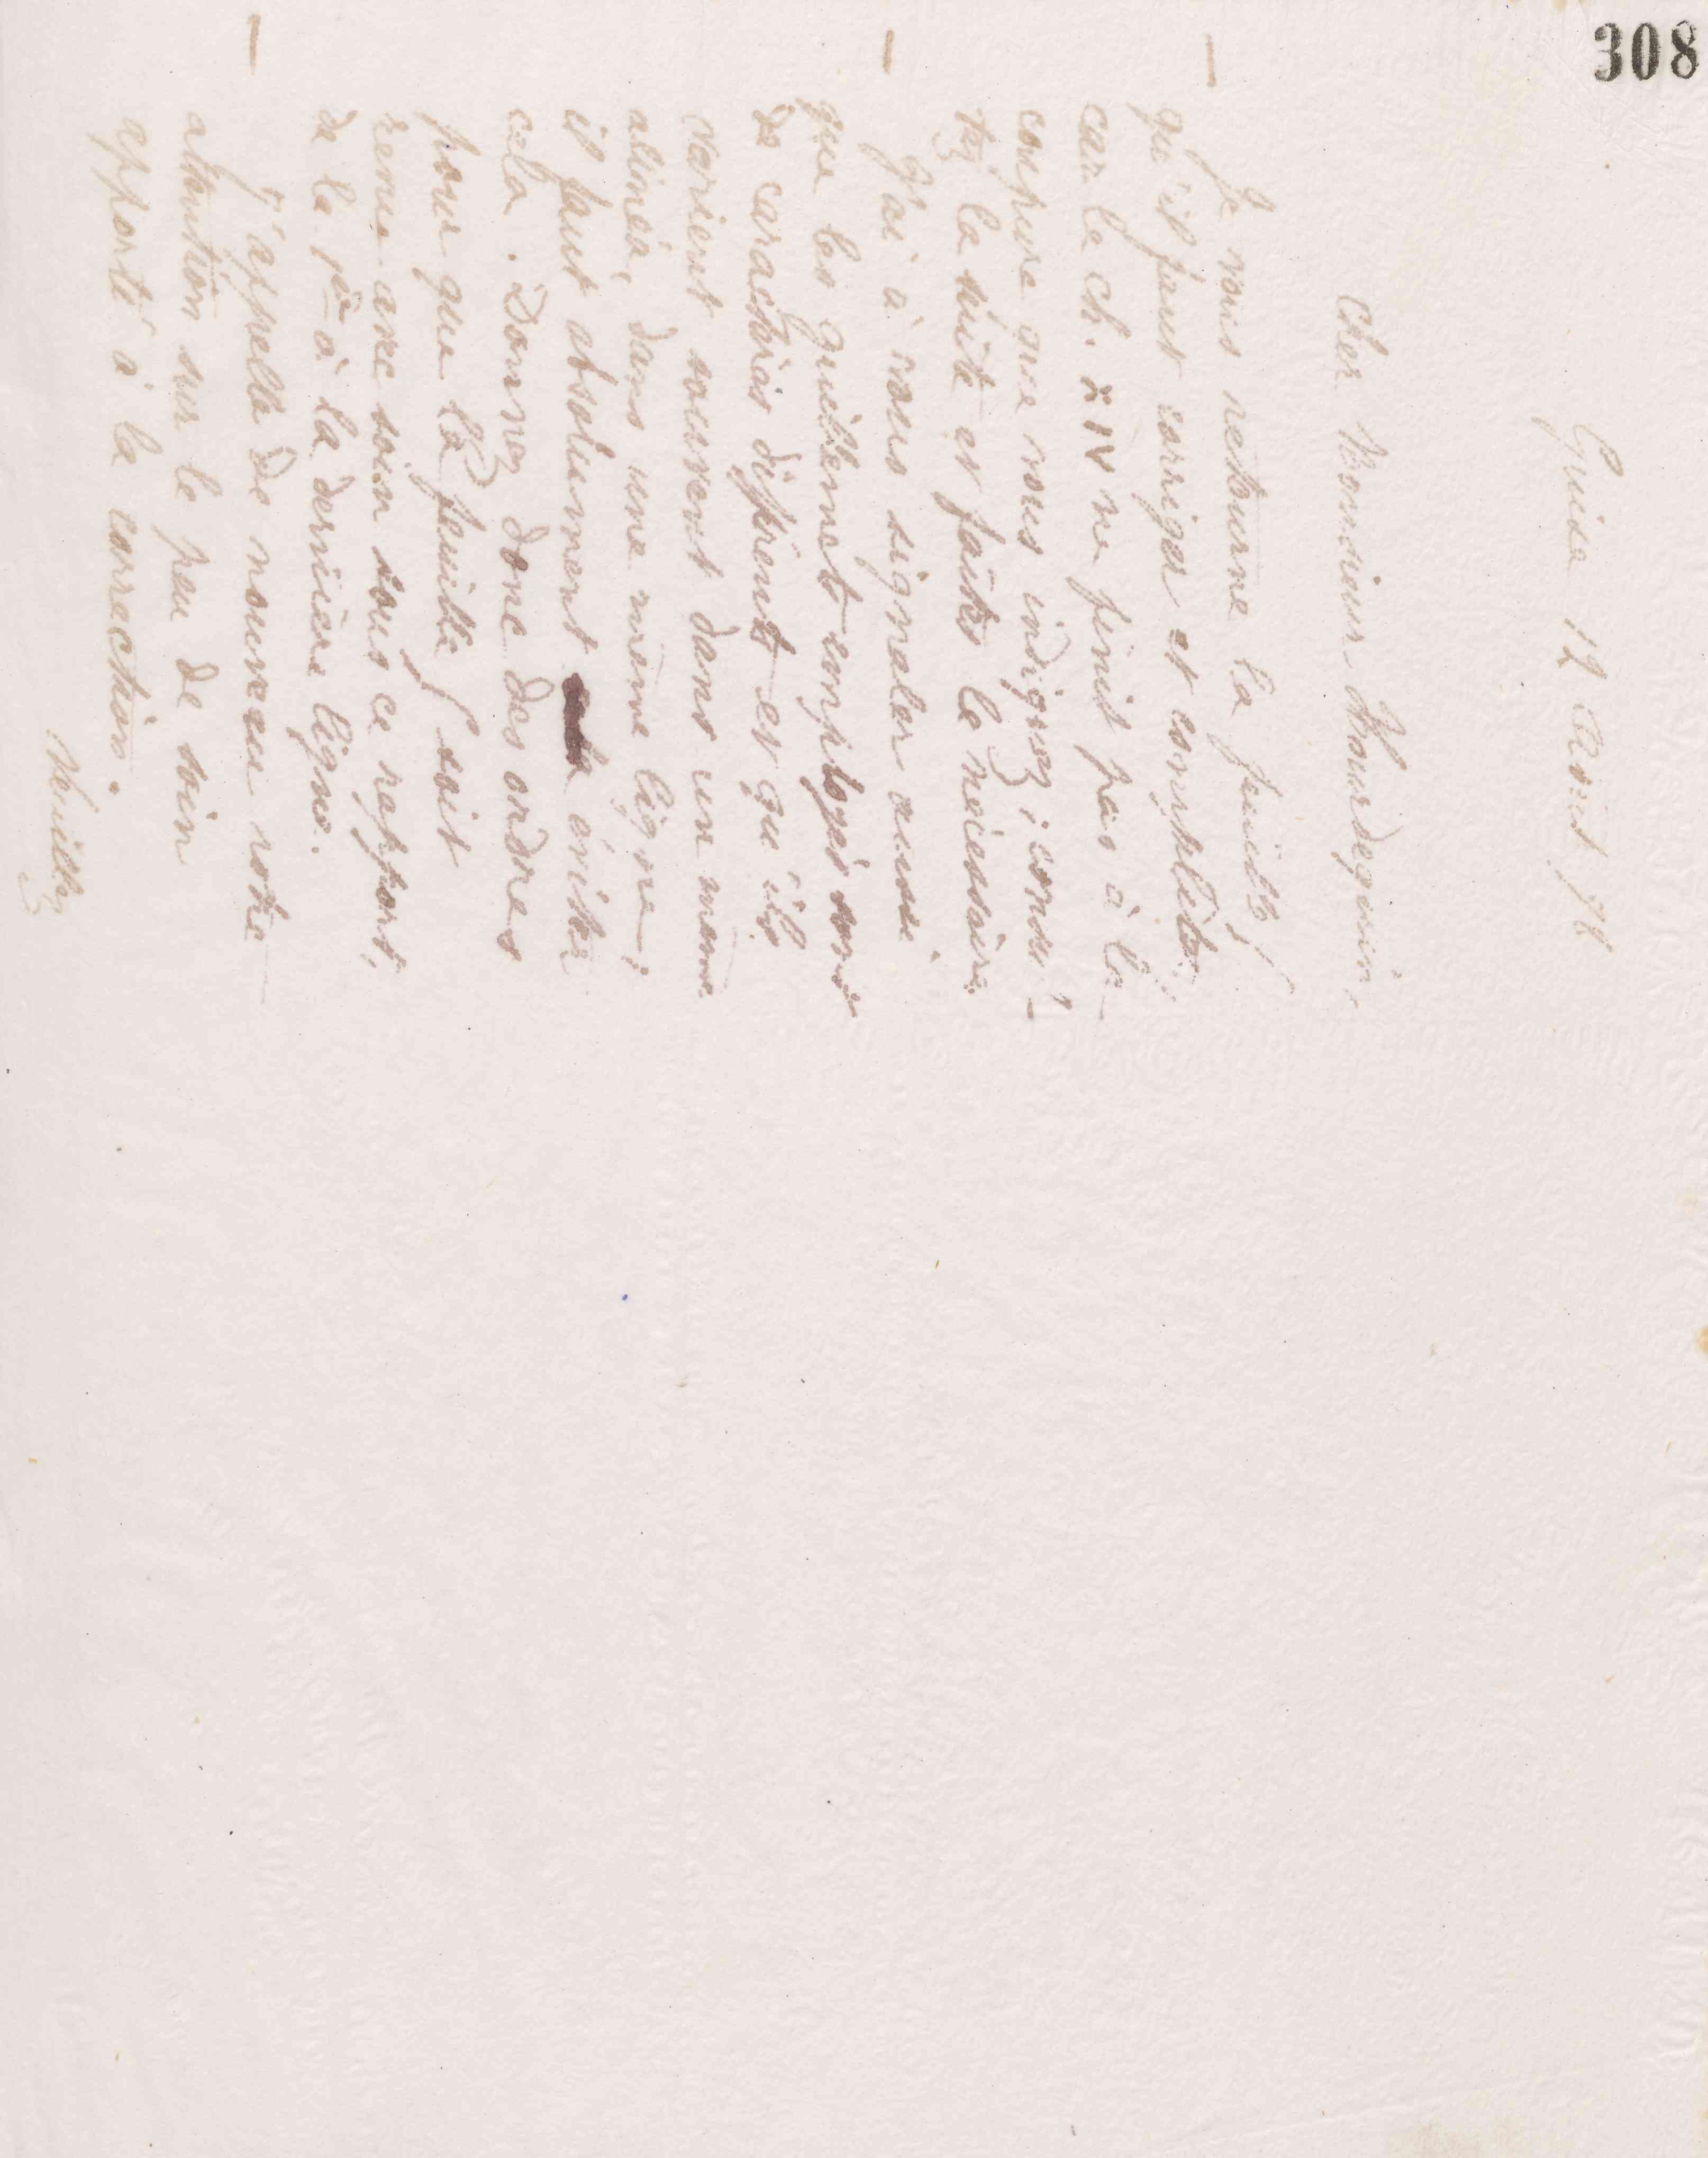 308
Guise 12 avril 98
Cher Monsieur Hourdequin,
Je vous retourne la feuille
qu'il faut corriger et compléter;
car le ch. XIV ne finit pas à la
coupure que vous indiquez; consul-
tez la suite et faites le nécessaire.
J'ai à vous signaler aussi
que les guillemets employés sont
de caractères différents et qu'ils
varient souvent dans un même
alinéa, dans une même ligne;
il faut absolument éviter
cela. Donnez donc des ordres
pour que la feuille soit
revue avec soin sous ce rapport,
de la 1è à la dernière ligne.
J'appelle de nouveau votre
attention sur le peu de soin
apporté à la correction.
Veuillez